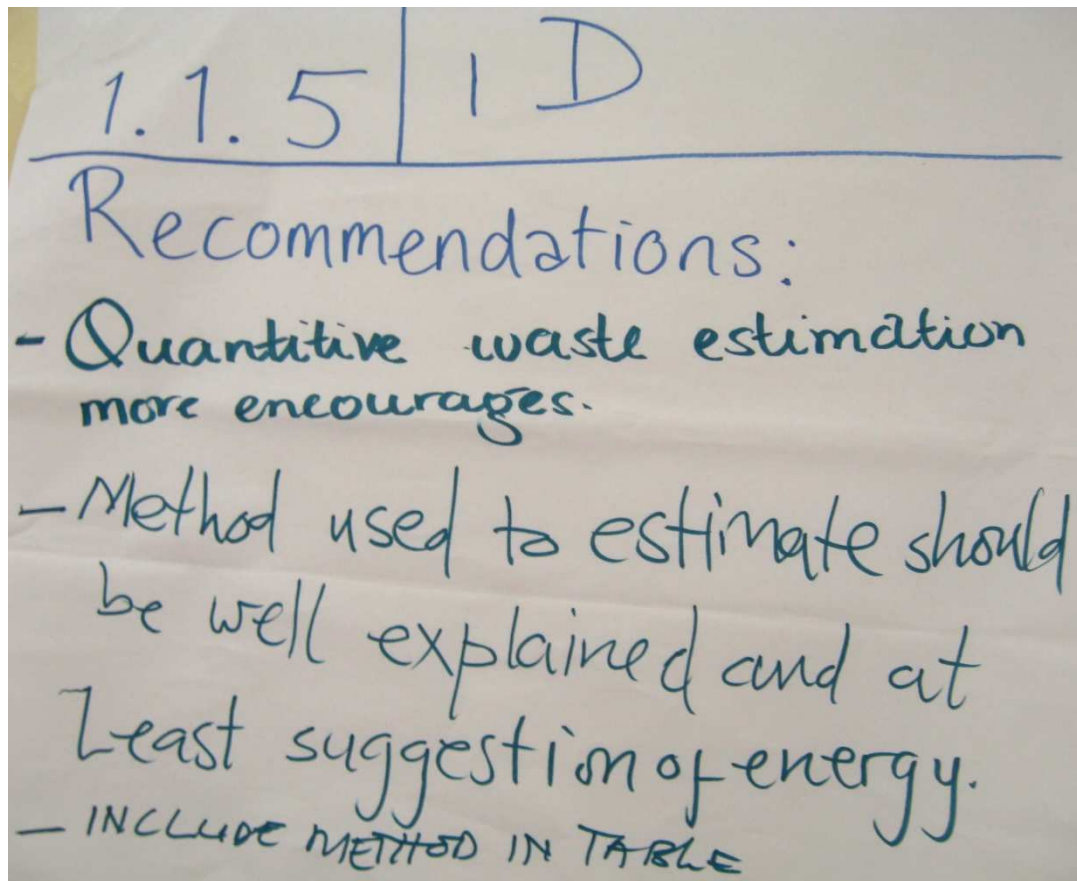 1.1.5 | 1 D
Recommendations:
- Quantitive waste estimation
more encourages.
- Method used to estimate should
be well explained and at
Least suggestion of energy.
- INCLUDE METHOD IN TABLE